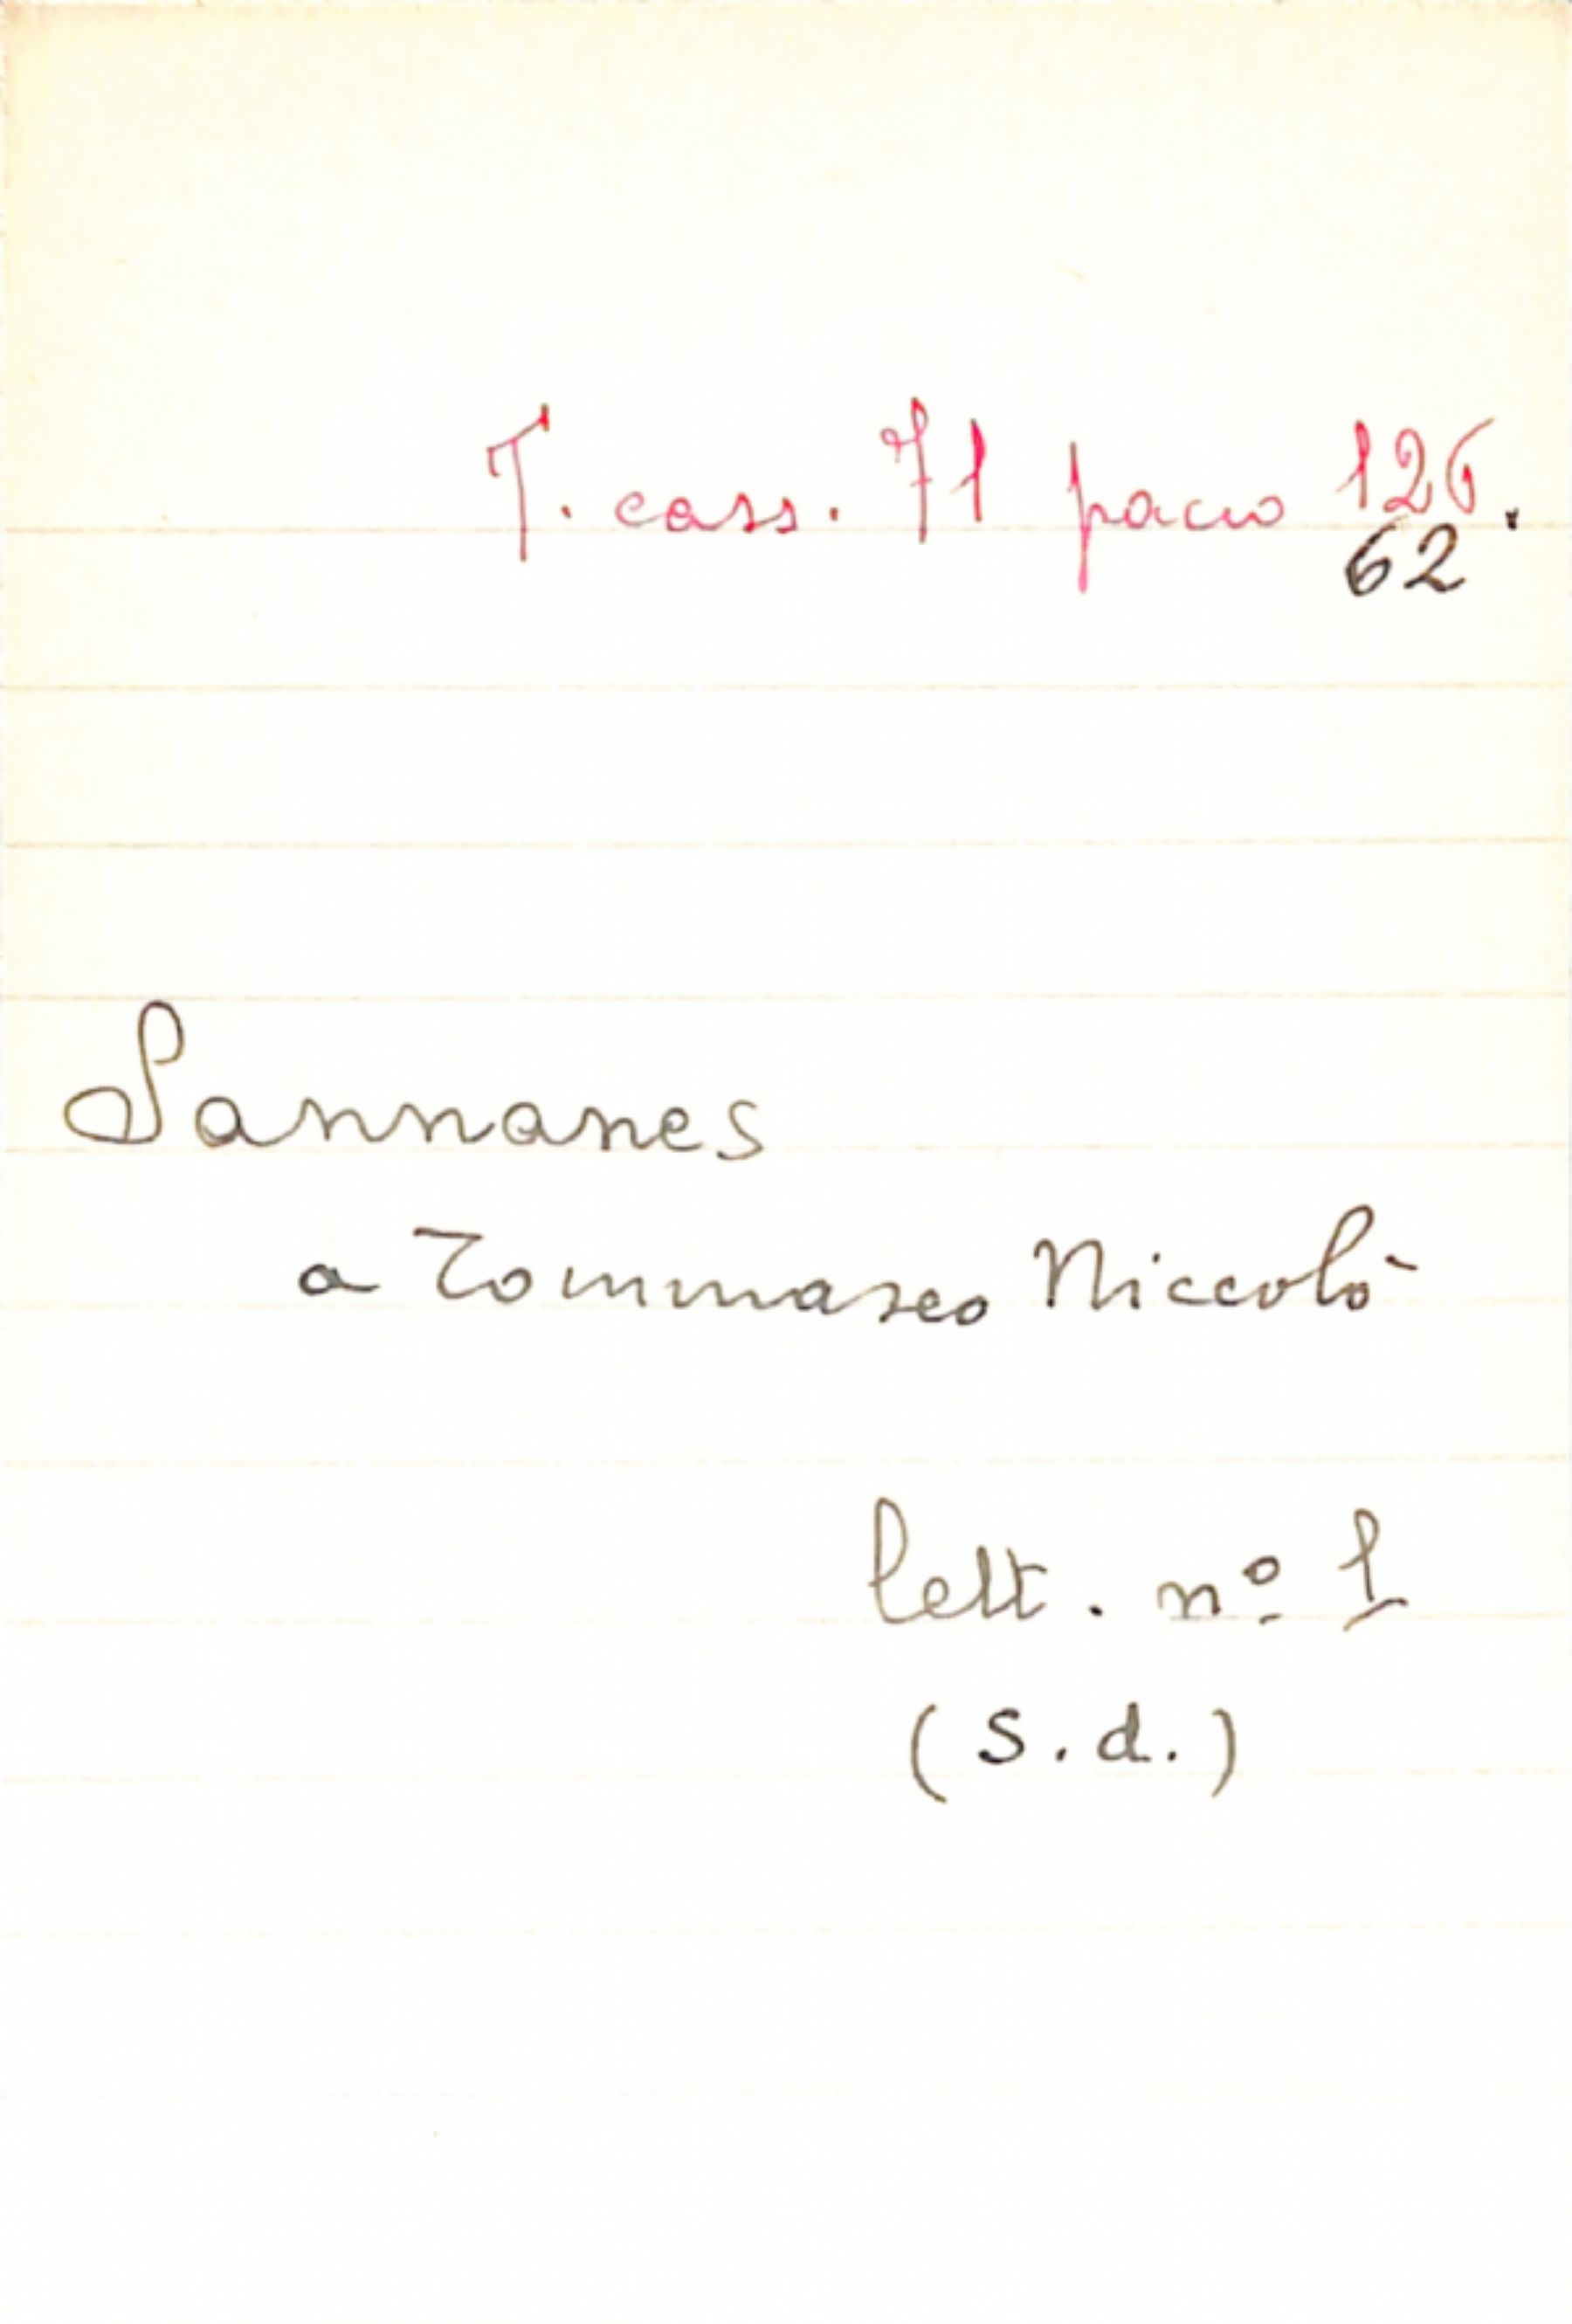 T. cass. 71 pacco 126.
62
Sannanes
a Tommaseo Niccolò
lett. nº 1
(s.d.)